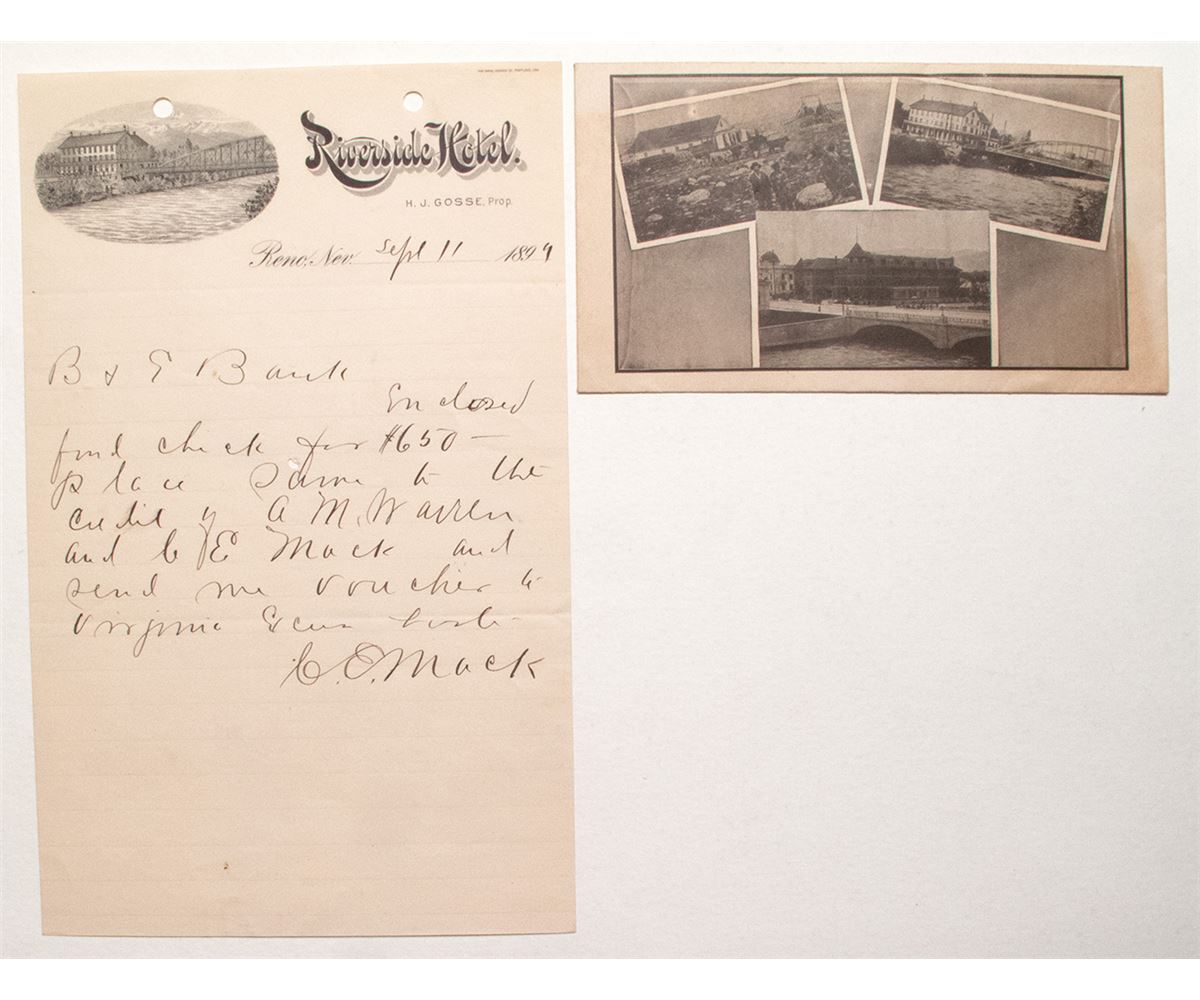 Riverside Hotel.
H. J. GOSSE, Prop.
Reno, Nev. Sept 11 1899
B & E Bank
Enclosed
find check for $650—
place same to the
credit of A M. Warren
and C E Mack and
send me voucher to
Virginia
C. E. Mack